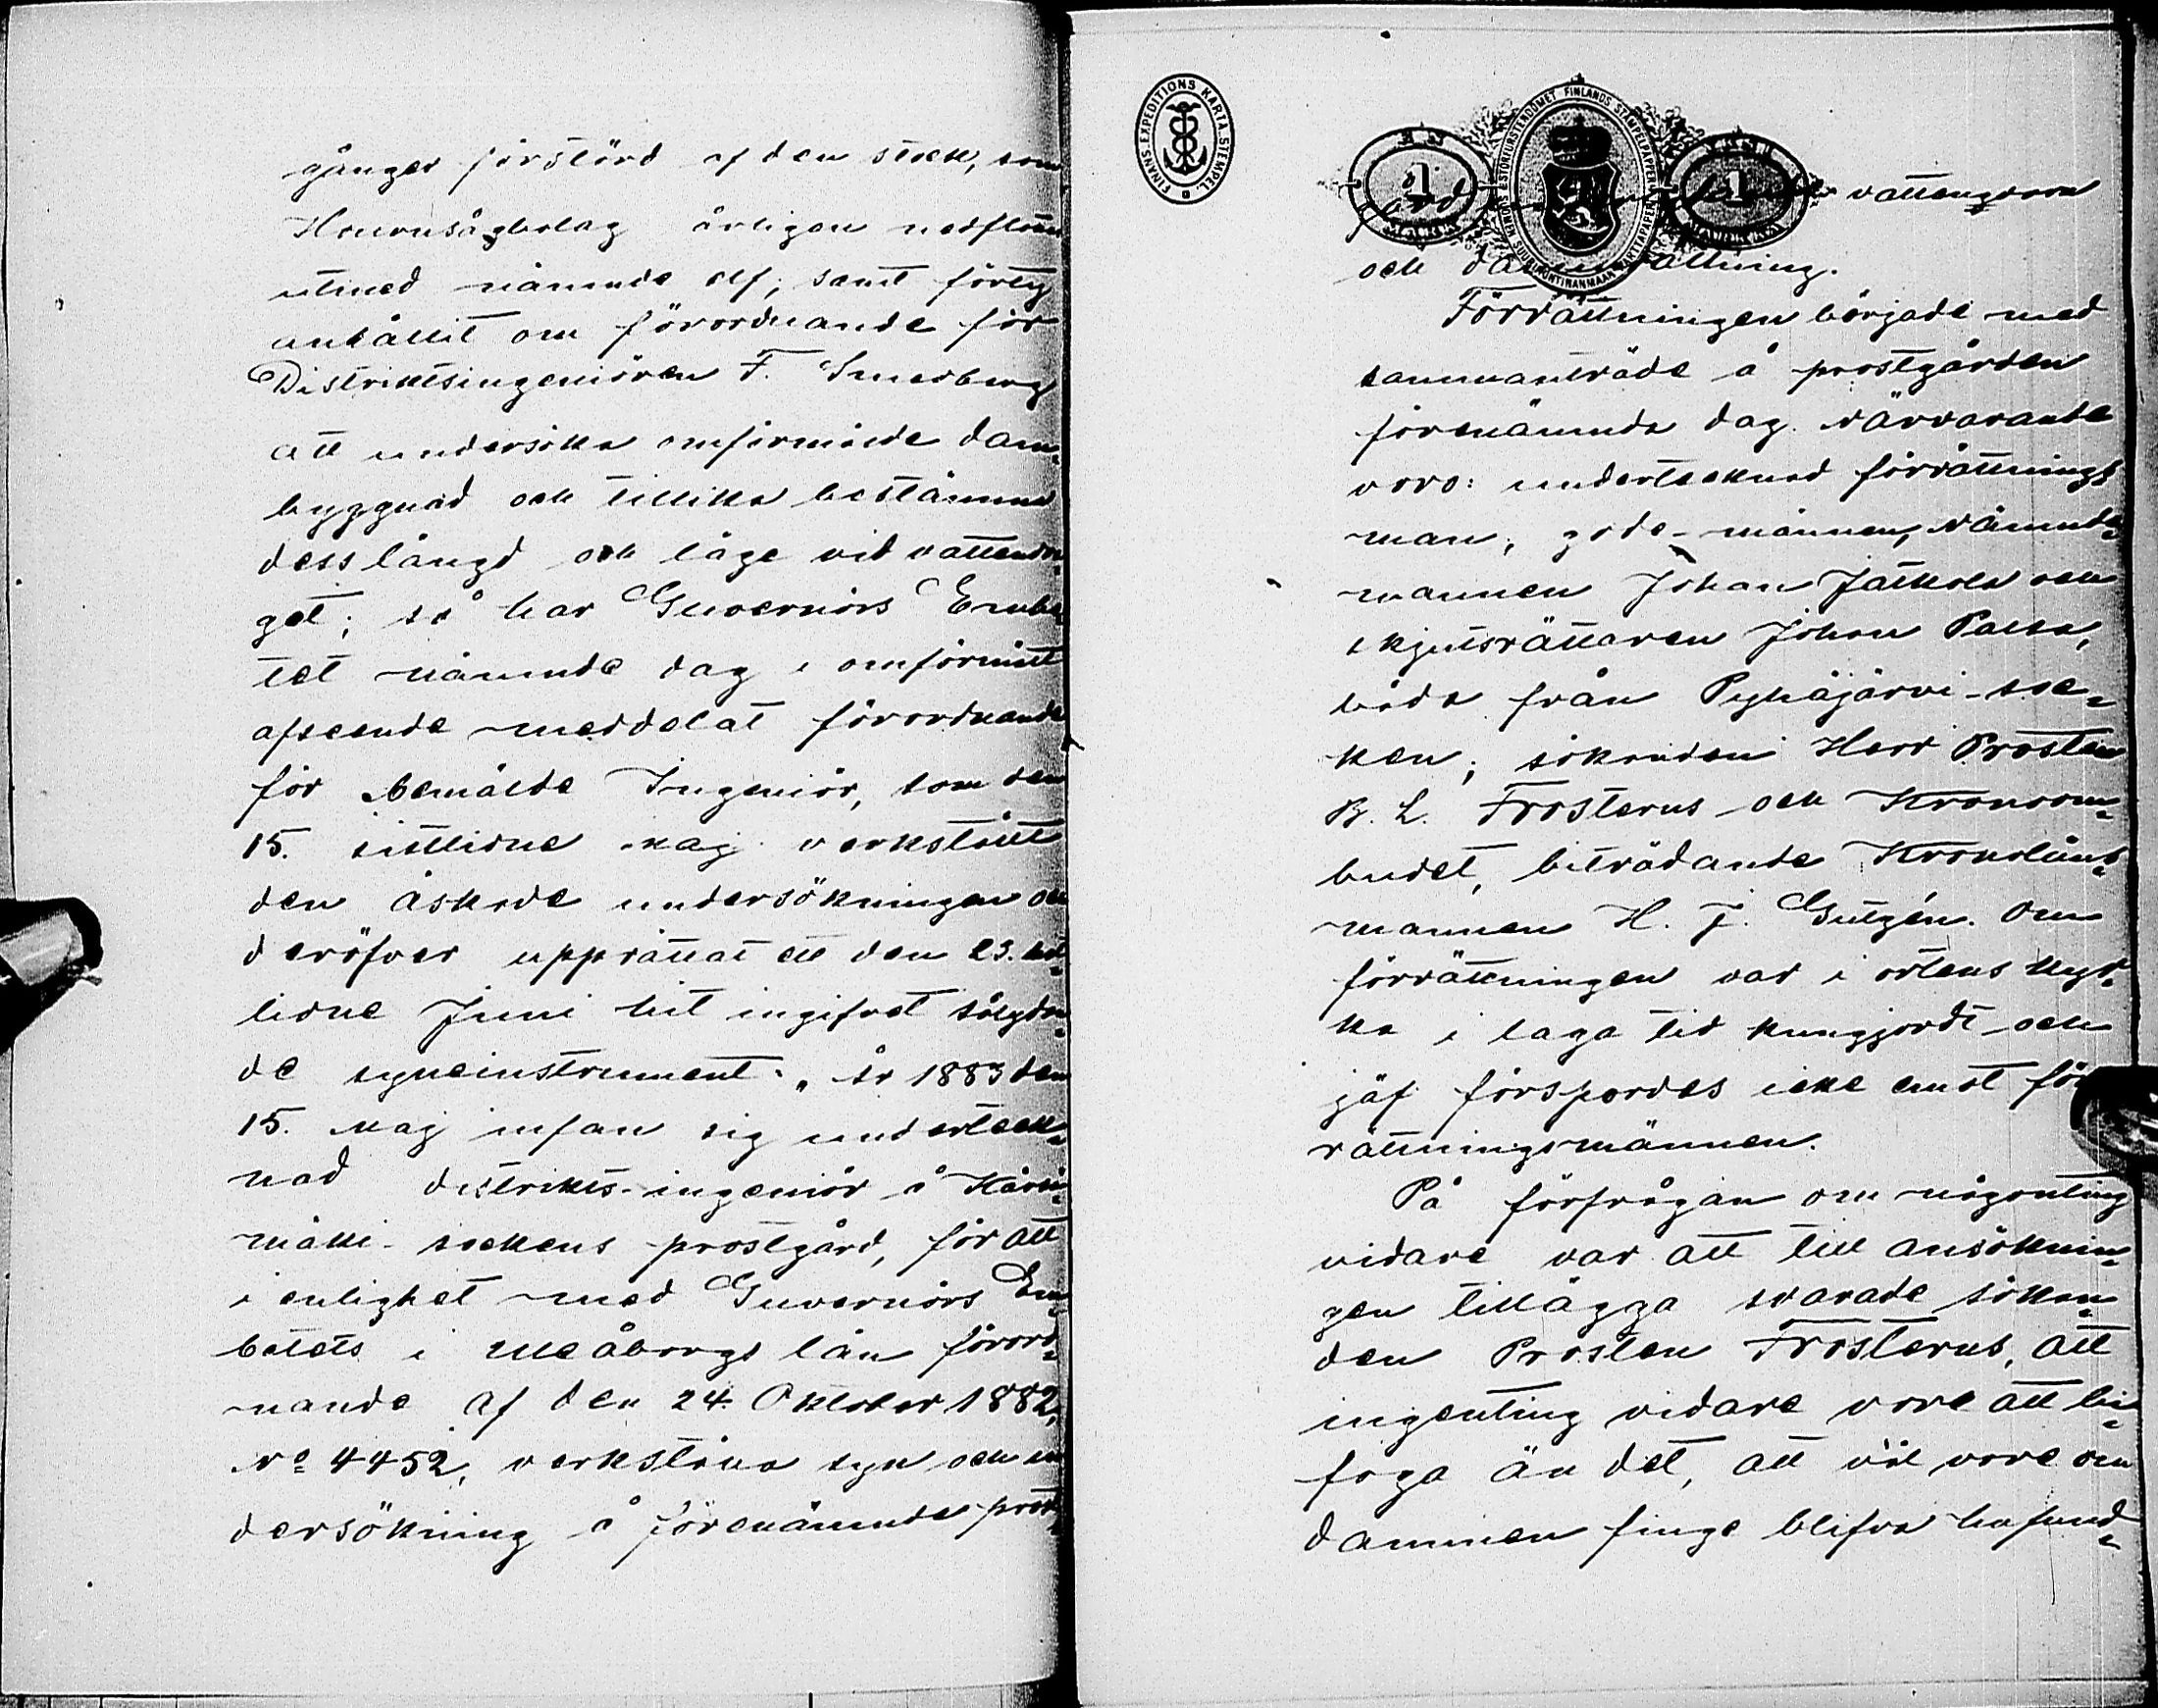 gånger förstörd af den stock, som
Hourusågbolag årligen nedflöter
utmed nämnde elf; samt förty
anhållit om förordnande för
Distriktsingeniören F. Smedberg
att undersöka omförmälde dam-
byggnad och tillika bestämma
dess längd och läge vid vattendra-
get; så har Guvernörs Embe-
tet nämnde dag i omförmält
afseende meddelat förordnande
för bemälde Ingeniör, som den
15. sistlidne maj verkställt
den äskade undersökningen och
deröfver upprättat ett den 23. sist-
lidne Juni hit ingifvet sålydan-
de syneinstrument: „År 1883 den
15. Maj infan sig underteck-
nad distrikts-ingeniör å Kärsä-
mäki sockens prostgård, för att
i enlighet med Guvernörs Em-
betets i Uleåborgs län förord-
nande af den 24. Oktober 1882,
No 4452, verkställa syn och un-
dersökning å förenämnde prost-
FINANS. EXPEDITIONS KARTA. STEMPEL.
STORFURSTENDÖMET FINLANDS STÄMPELPAPPER
1
1
gård vattenqvarn
och damm
Förrättningen började med
sammanträde å prostgården
förenämnda dag. Närvarande
voro: undertecknad förrättnings-
man, gode-männen, Nämnde-
mannen Johan Jatkola och
skjutsrättaren Johan Palsa,
båda från Pyhäjärvi soc-
ken; sökanden Herr Prosten
B. L. Frosterus och Kronoom-
budet, biträdande Kronoläns-
mannen H. J. Gutzén. Om
förrättningen var i ortens kyr-
ka i laga tid kungjordt och
jäf förspordes icke emot för-
rättningsmännen.
På förfrågan om någonting
vidare var att till ansöknin-
gen tillägga svarade sökan-
den Prosten Frosterus, att
ingenting vidare vore att bi-
foga än det, att väl vore om
dammen finge blifva befund-